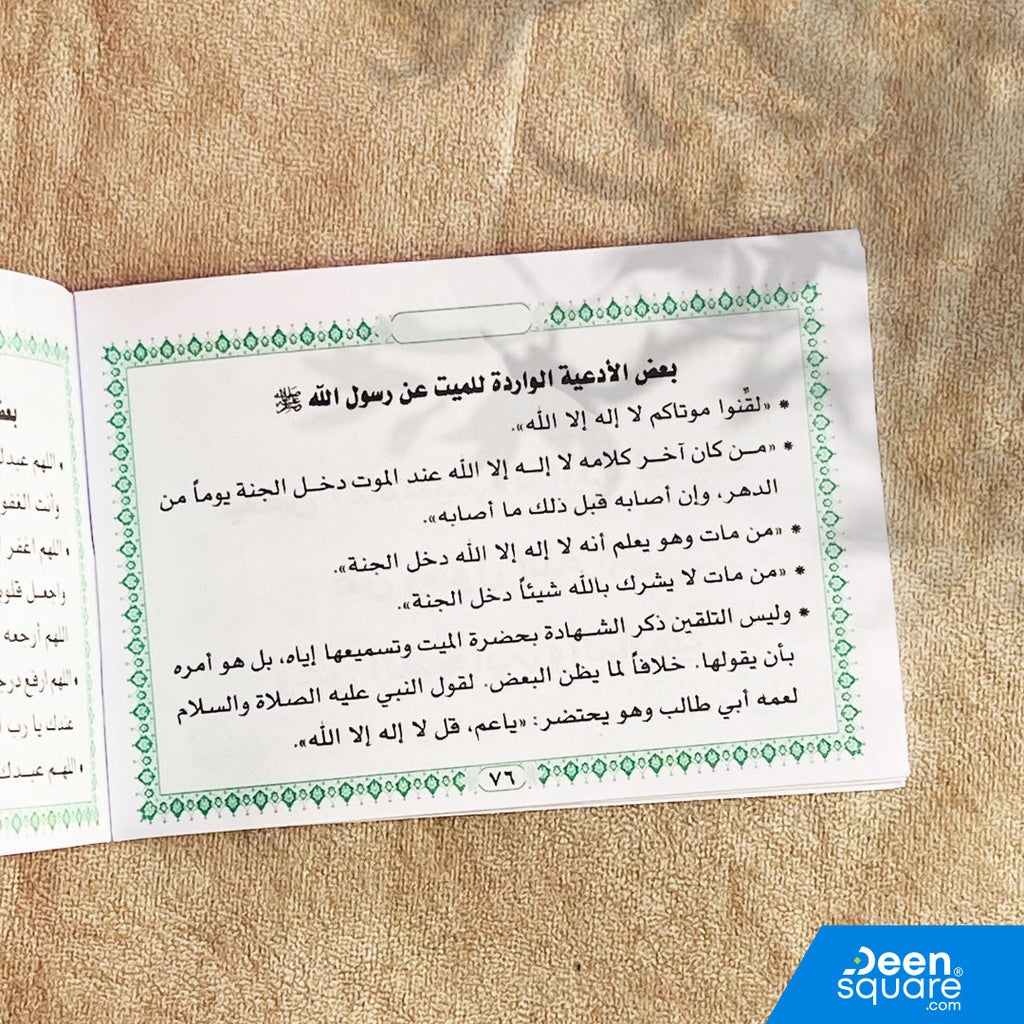 بعض الأدعية الواردة للميت عن رسول الله ﷺ
* «لقِّنوا موتاكم لا إله إلا الله».
* «مـن كان آخـر كلامه لا إلـه إلا الله عند الموت دخـل الجنة يوماً من
الدهر، وإن أصابه قبل ذلك ما أصابه».
* «من مات وهو يعلم أنه لا إله إلا الله دخل الجنة».
* «من مات لا يشرك بالله شيئاً دخل الجنة».
* وليس التلقين ذكر الشـهادة بحضرة الميت وتسميعها إياه، بل هو أمره
بأن يقولها. خلافاً لما يظن البعض. لقول النبي عليه الصلاة والسلام
لعمه أبي طالب وهو يحتضر: «ياعم، قل لا إله إلا الله».
٧٦
بعض
• اللهم عبدك
وأنت الغفو
• اللهم اغفر
واجعـل قلو
اللهم أرجعه
• اللهم ارفع درج
عندك يا رب ا
• اللهـم عبـدك
Deen
square®
.com